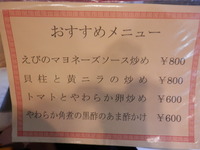 おすすめメニュー
えびのマヨネーズソース炒め ¥800
貝柱と黄ニラの炒め ¥800
トマトとやわらか卵炒め ¥600
やわらか角煮の黒酢のあま酢かけ ¥600